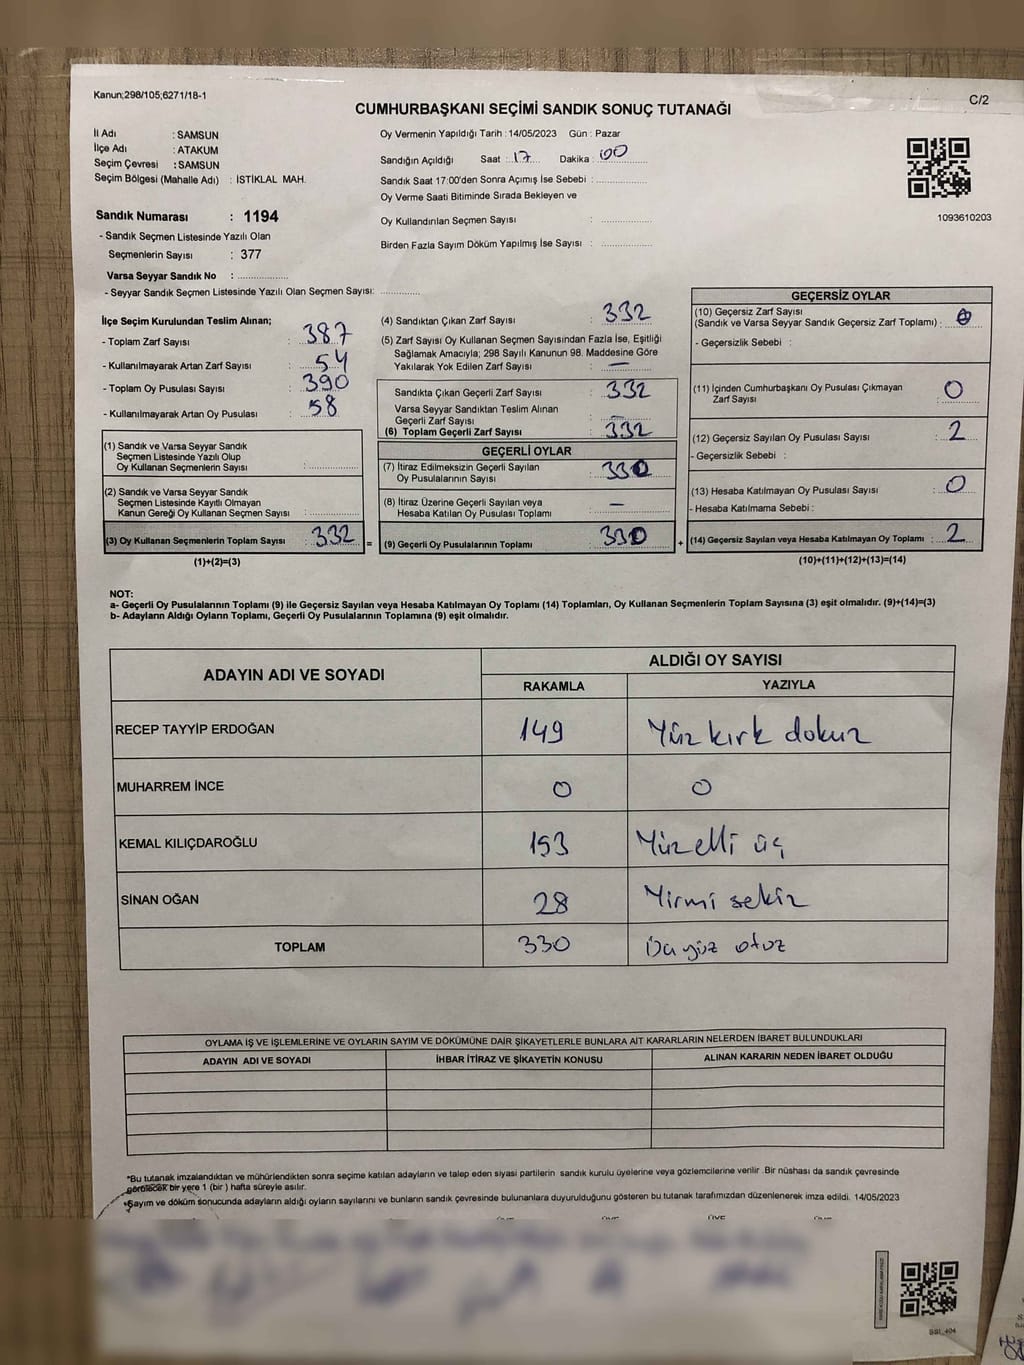 Kanun;298/105;6271/18-1
C/2
CUMHURBAŞKANI SEÇİMİ SANDIK SONUÇ TUTANAĞI
İl Adı : SAMSUN
İlçe Adı : ATAKUM
Seçim Çevresi : SAMSUN
Seçim Bölgesi (Mahalle Adı) : İSTİKLAL MAH.
Oy Vermenin Yapıldığı Tarih : 14/05/2023 Gün : Pazar
Sandığın Açıldığı Saat : 17 Dakika : 00
Sandık Saat 17:00'den Sonra Açımış İse Sebebi :
Oy Verme Saati Bitiminde Sırada Bekleyen ve
Oy Kullandırılan Seçmen Sayısı :
Birden Fazla Sayım Döküm Yapılmış İse Sayısı :
1093610203
Sandık Numarası : 1194
- Sandık Seçmen Listesinde Yazılı Olan
Seçmenlerin Sayısı : 377
Varsa Seyyar Sandık No :
- Seyyar Sandık Seçmen Listesinde Yazılı Olan Seçmen Sayısı:
İlçe Seçim Kurulundan Teslim Alınan;
- Toplam Zarf Sayısı : 387
- Kullanılmayarak Artan Zarf Sayısı : 54
- Toplam Oy Pusulası Sayısı : 390
- Kullanılmayarak Artan Oy Pusulası : 58
(1) Sandık ve Varsa Seyyar Sandık
Seçmen Listesinde Yazılı Olup
Oy Kullanan Seçmenlerin Sayısı :
(2) Sandık ve Varsa Seyyar Sandık
Seçmen Listesinde Kayıtlı Olmayan
Kanun Gereği Oy Kullanan Seçmen Sayısı :
(3) Oy Kullanan Seçmenlerin Toplam Sayısı : 332 =
(1)+(2)=(3)
(4) Sandıktan Çıkan Zarf Sayısı : 332
(5) Zarf Sayısı Oy Kullanan Seçmen Sayısından Fazla İse, Eşitliği
Sağlamak Amacıyla; 298 Sayılı Kanunun 98. Maddesine Göre
Yakılarak Yok Edilen Zarf Sayısı : —
Sandıkta Çıkan Geçerli Zarf Sayısı : 332
Varsa Seyyar Sandıktan Teslim Alınan
Geçerli Zarf Sayısı : —
(6) Toplam Geçerli Zarf Sayısı : 332
GEÇERLİ OYLAR
(7) İtiraz Edilmeksizin Geçerli Sayılan
Oy Pusulalarının Sayısı : 330
(8) İtiraz Üzerine Geçerli Sayılan veya
Hesaba Katılan Oy Pusulası Toplamı : —
(9) Geçerli Oy Pusulalarının Toplamı : 330 +
GEÇERSİZ OYLAR
(10) Geçersiz Zarf Sayısı
(Sandık ve Varsa Seyyar Sandık Geçersiz Zarf Toplamı) : 0
- Geçersizlik Sebebi :
(11) İçinden Cumhurbaşkanı Oy Pusulası Çıkmayan
Zarf Sayısı : 0
(12) Geçersiz Sayılan Oy Pusulası Sayısı : 2
- Geçersizlik Sebebi :
(13) Hesaba Katılmayan Oy Pusulası Sayısı : 0
- Hesaba Katılmama Sebebi :
(14) Geçersiz Sayılan veya Hesaba Katılmayan Oy Toplamı : 2
(10)+(11)+(12)+(13)=(14)
NOT:
a- Geçerli Oy Pusulalarının Toplamı (9) ile Geçersiz Sayılan veya Hesaba Katılmayan Oy Toplamı (14) Toplamları, Oy Kullanan Seçmenlerin Toplam Sayısına (3) eşit olmalıdır. (9)+(14)=(3)
b- Adayların Aldığı Oyların Toplamı, Geçerli Oy Pusulalarının Toplamına (9) eşit olmalıdır.
ADAYIN ADI VE SOYADI ALDIĞI OY SAYISI
RAKAMLA YAZIYLA
RECEP TAYYİP ERDOĞAN 149 Yüz kırk dokuz
MUHARREM İNCE 0 0
KEMAL KILIÇDAROĞLU 153 Yüzelli üç
SİNAN OĞAN 28 Yirmi sekiz
TOPLAM 330 Üçyüz otuz
OYLAMA İŞ VE İŞLEMLERİNE VE OYLARIN SAYIM VE DÖKÜMÜNE DAİR ŞİKAYETLERLE BUNLARA AİT KARARLARIN NELERDEN İBARET BULUNDUKLARI
ADAYIN ADI VE SOYADI İHBAR İTİRAZ VE ŞİKAYETİN KONUSU ALINAN KARARIN NEDEN İBARET OLDUĞU
*Bu tutanak imzalandıktan ve mühürlendikten sonra seçime katılan adayların ve talep eden siyasi partilerin sandık kurulu üyelerine veya gözlemcilerine verilir .Bir nüshası da sandık çevresinde
görülecek bir yere 1 (bir ) hafta süreyle asılır.
*Sayım ve döküm sonucunda adayların aldığı oyların sayılarını ve bunların sandık çevresinde bulunanlara duyurulduğunu gösteren bu tutanak tarafımızdan düzenlenerek imza edildi. 14/05/2023